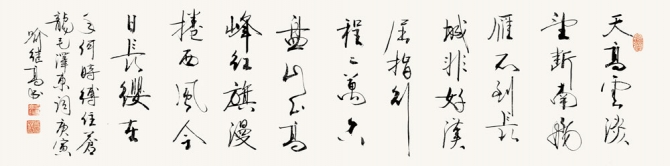 天高雲淡
望斷南飛
雁不到長
城非好漢
屈指行
程二萬六
盤山上高
峰紅旗漫
捲西風今
日長纓在
手何時縛住蒼
龍毛澤東詞庚寅
喻繼高書